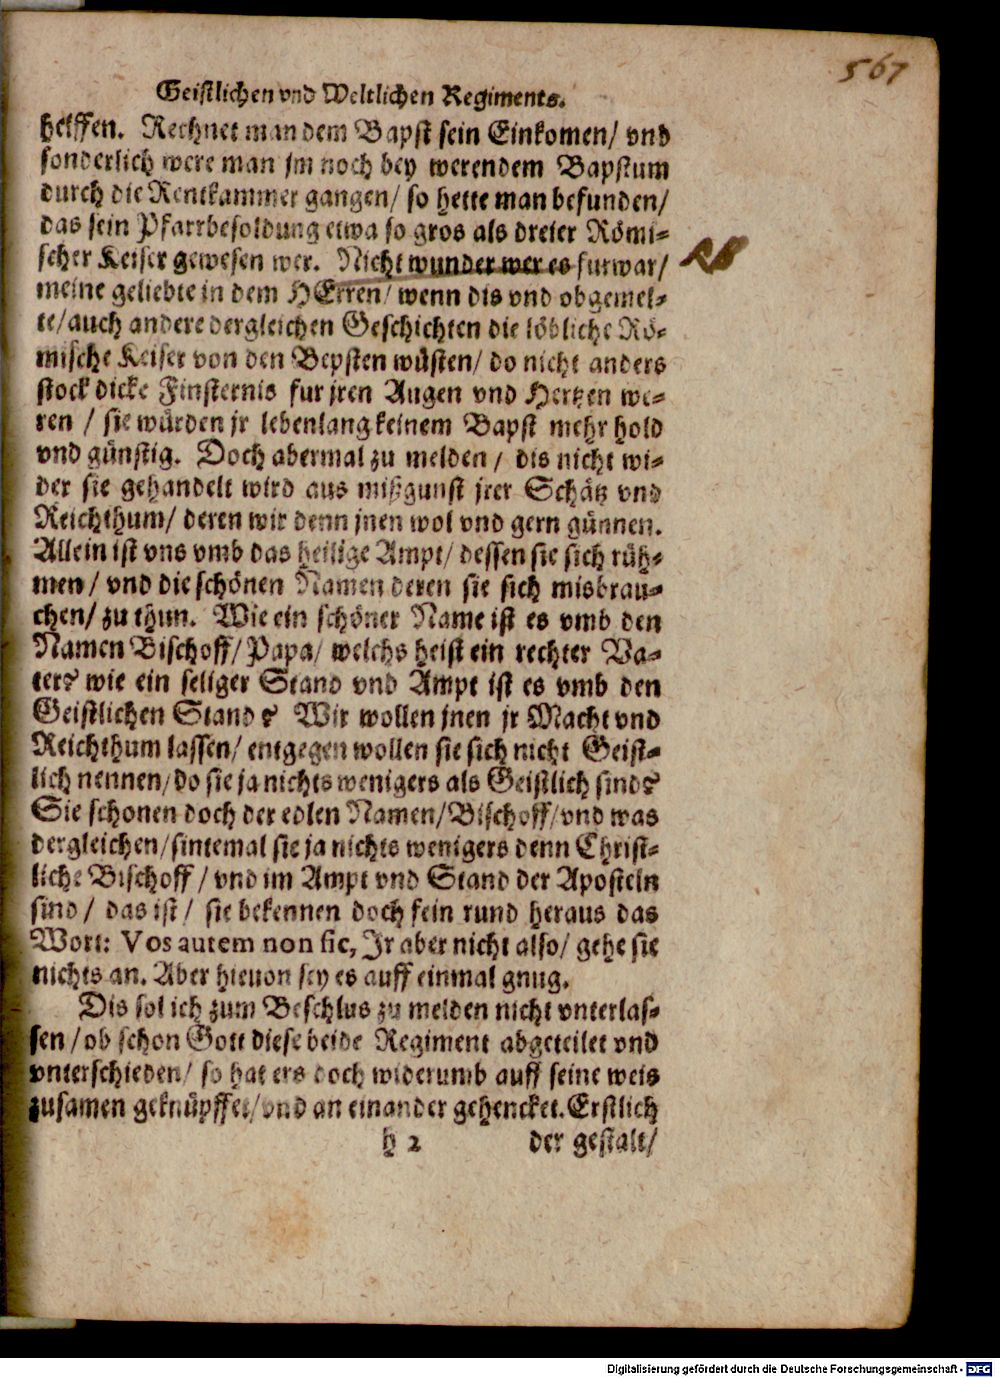 567
Geistlichen vnd Weltlichen Regiments.
helffen. Rechnet man dem Bapst sein Einkomen/ vnd
sonderlich were man jm noch bey werendem Bapstum
durch die Rentkammer gangen/ so hette man befunden/
das sein Pfarrbesoldung etwa so gros als dreier Römi-
scher Keiser gewesen wer. Nicht wunder wer es furwar/
meine geliebte in dem HErren/ wenn dis vnd obgemel-
te/auch andere dergleichen Geschichten die löbliche Rö-
mische Keiser von den Bepsten wüsten/ do nicht anders
stock dicke Finsternis fur jren Augen vnd Hertzen we-
ren / sie würden jr lebenlang keinem Bapst mehr hold
vnd günstig. Doch abermal zu melden / dis nicht wi-
der sie gehandelt wird aus mißgunst jrer Schätz vnd
Reichthum/ deren wir denn jnen wol vnd gern günnen.
Allein ist vns vmb das heilige Ampt/ dessen sie sich rüh-
men/ vnd die schönen Namen deren sie sich misbrau-
chen/ zu thun. Wie ein schöner Name ist es vmb den
Namen Bischoff/ Papa/ welchs heist ein rechter Va-
ter? wie ein seliger Stand vnd Ampt ist es vmb den
Geistlichen Stand? Wir wollen jnen jr Macht vnd
Reichthum lassen/ entgegen wollen sie sich nicht Geist-
lich nennen/do sie ja nichts wenigers als Geistlich sind?
Sie schonen doch der edlen Namen/Bischoff/vnd was
dergleichen/sintemal sie ja nichts wenigers denn Christ-
liche Bischoff / vnd im Ampt vnd Stand der Aposteln
sind/ das ist/ sie bekennen doch fein rund heraus das
Wort: Vos autem non sic, Jr aber nicht also/ gehe sie
nichts an. Aber hieuon sey es auff einmal gnug.
Dis sol ich zum Beschlus zu melden nicht vnterlas-
sen/ob schon Gott diese beide Regiment abgeteilet vnd
vnterschieden/ so hat ers doch widerumb auff seine weis
zusamen geknüpffet/vnd an einander gehencket. Erstlich
h 2 der gestalt/
Digitalisierung gefördert durch die Deutsche Forschungsgemeinschaft - DFG